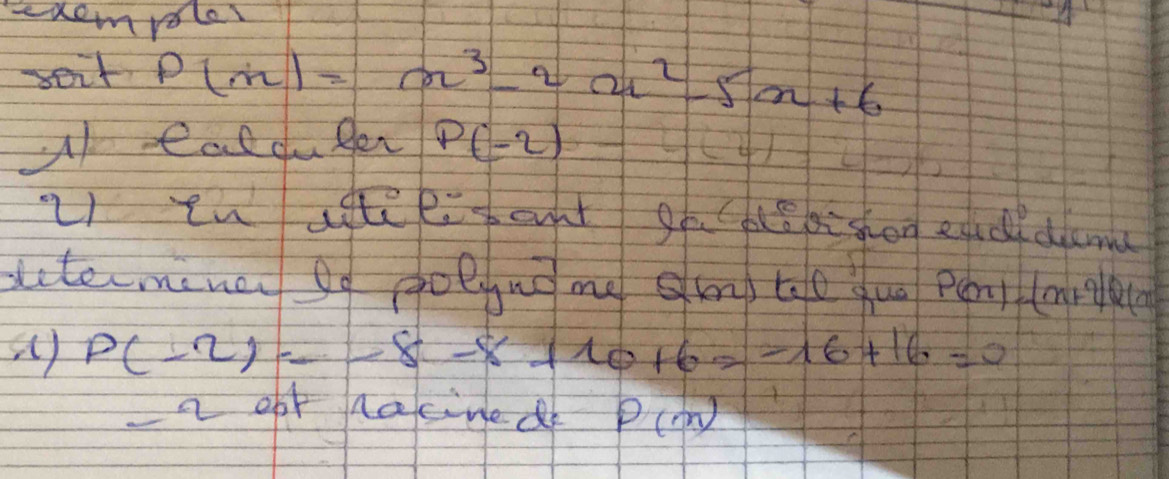 exemple:
soit P(x) = x³ - 2x² - 5x + 6
1) Calculer P(-2)
2) En utilisant la division euclidienne
determiner le polynôme Q(x) tel que P(x) = (x+2)Q(x)
1) P(-2) = -8 -8 + 10 + 6 = -16 + 16 = 0
-2 est racine de P(x)